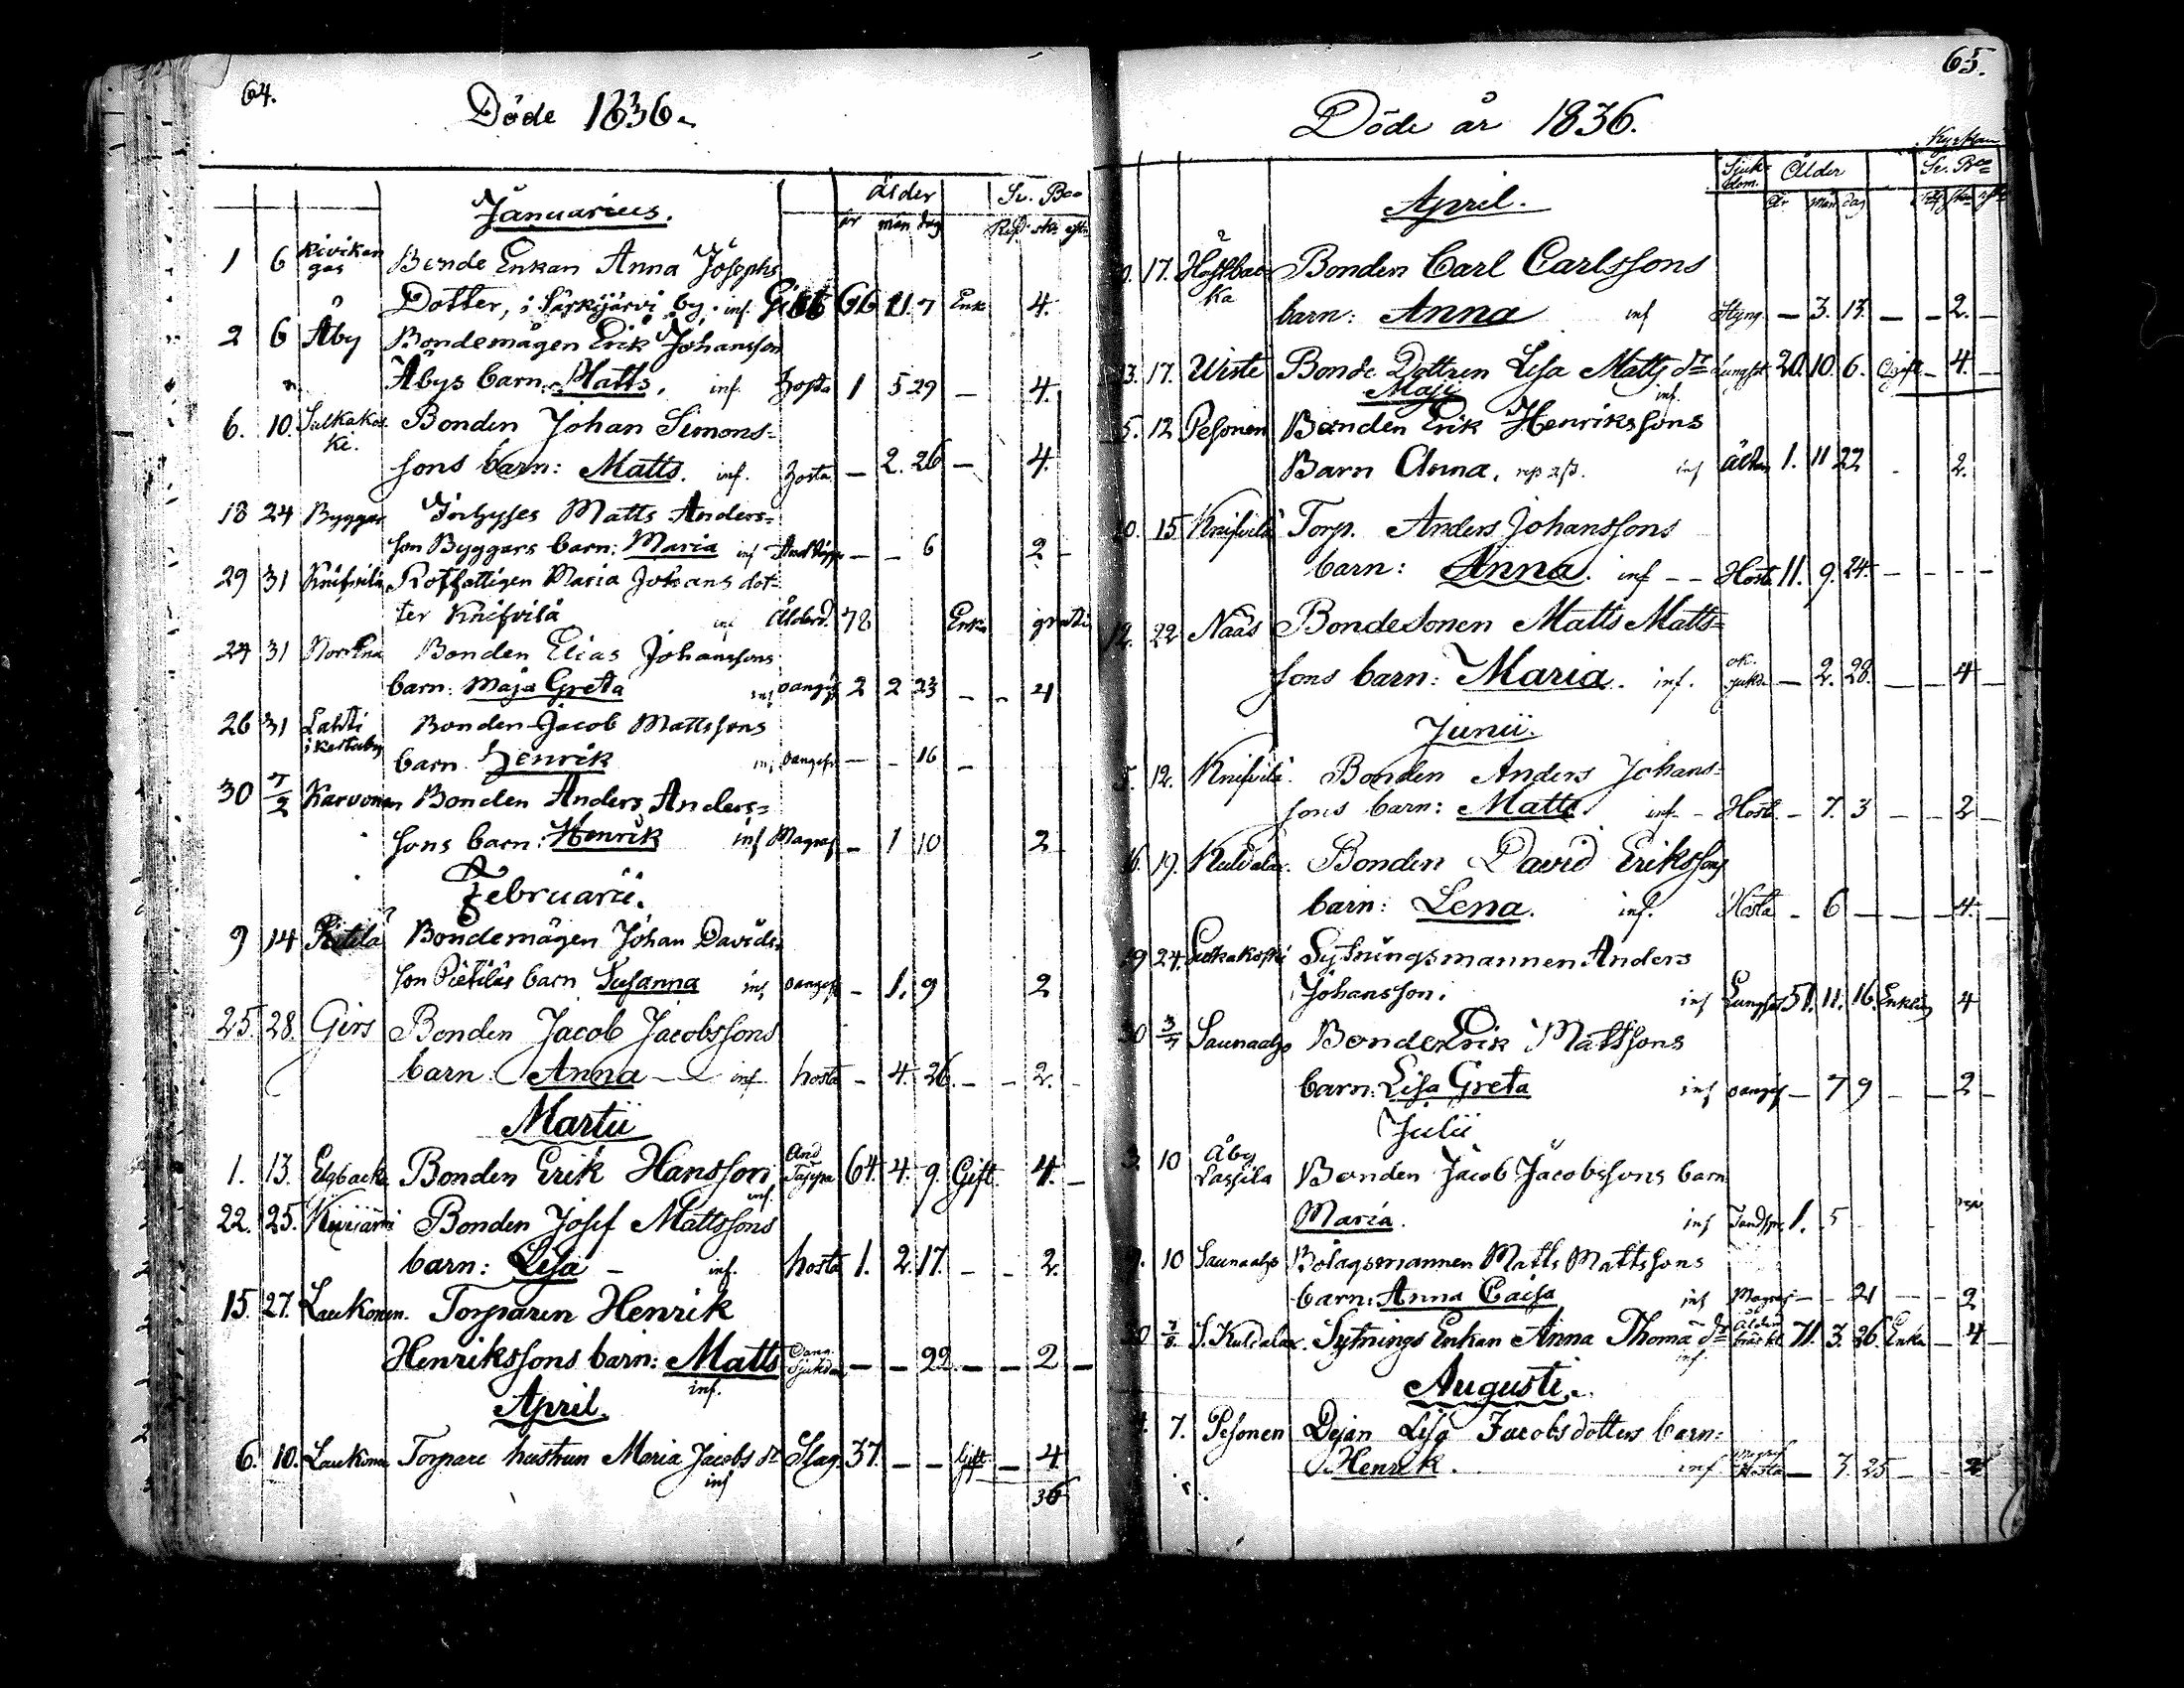 64.
Döde 1836.
Ålder Sv. Bco
år mån dag Rdr sk rst
Januarius.
1 6 Kivikan
gas Bonde Enkan Anna Josephs
Dotter, i Särkijärvi by. inf. 66 11 7 Enk 4.
2 6 Åby Bondemågen Erik Johansson
Åbys barn: Matts, inf. hosta 1 5 29 — 4.
6. 10. Sulkakos
ki. Bonden Johan Simons=
sons barn: Matts. inf. hosta — 2. 26 — 4.
18 24 Byggar Inhyses Matts Anders=
son Byggars barn: Maria inf Andtäppa — — 6 2 —
29 31 Knifvila Rotfattigen Maria Johans dot=
ter Knifvilä inf Ålderd. 78 Enka gratis
24 31 Norrena Bonden Elias Johanssons
barn: Maja Greta inf oangif 2 2 23 — — 4
26 31 Lahti
i Keskuby Bonden Jacob Mattssons
barn Henrik inf oangif. — — 16 —
30 7/2 Karvonen Bonden Anders Anders=
sons barn: Henrik inf Magref — 1 10 2
Februarii.
9 14 Pietilä Bondemågen Johan Davids=
son Pietiläs barn Susanna inf oangif — 1. 9 2
25. 28. Gers Bonden Jacob Jacobssons
barn: Anna — inf. hosta — 4. 26. — — 2. —
Martii
1. 13. Elgback Bonden Erik Hansson And
Täppa 64. 4. 9. Gift. 4. —
inf.
22. 25. Kujamäki Bonden Josef Mattssons
barn: Lisa — inf. hosta 1. 2. 17. — — 2.
15. 27. Laukonen. Torparen Henrik
Henrikssons barn: Matts Oang.
Sjukdom — — 22. — — 2 —
inf.
April.
6. 10. Laukonen Torpare hustrun Maria Jacobs dr Slag. 37. — — Gift — 4
inf
36
65.
Döde år 1836.
Kyrkan
Sjuk-
dom. Ålder Sv. Bco
År mån dag
April.
17. Höstbac
ka Bonden Carl Carlssons
barn: Anna inf Styng. — 3. 13. — — 2. —
13. 17. Wiste Bonde Dottren Lisa Matts dr Lungsot 20. 10. 6. Ogift — 4. —
Maji inf.
5. 12 Pesonen Bonden Erik Henrikssons
Barn Anna. inf 1. 11 22 2.
10. 15. Knifvilä Torp. Anders Johanssons
barn: Anna. inf — — Host. 11. 9. 24. — — — —
12. 22 Naäs Bondesonen Matts Matts=
sons barn: Maria. inf. ok.
sjukd. — 2. 28. — — 4 —
Junii.
5. 12. Knifvilä. Bonden Anders Johans=
sons barn: Matts. inf. — Host. — 7. 3 — — 2 —
16. 19. Kuldalax. Bonden David Erikssons
barn: Lena. inf. Hosta — 6 — — — 4. —
19 24. Sulkakoski Sytningsmannen Anders
Johansson. inf Lungsot 51. 11. 16. Enkling 4
30 3/7 Saunaaho Bonden Erik Mattssons
barn: Lisa Greta inf oangif — 7 9 — — 2 —
Julii
3. 10 Åby
Lassila Bonden Jacob Jacobssons barn
Maria. inf Tandspr. 1. 5
9. 10 Saunaaho Bolagsmannen Matts Mattssons
barn: Anna Caisa inf Magref — — 21 — — 2
30 7/8 S. Kuldalax. Sytnings Enkan Anna Thomæ dr Ålderd
bräckl. 71. 3. 26. Enka — 4 —
inf.
Augusti.
4. 7. Pesonen Dejan Lisa Jacobsdotters barn:
Henrik. inf. Magref
Hosta — 3. 25 — — 2